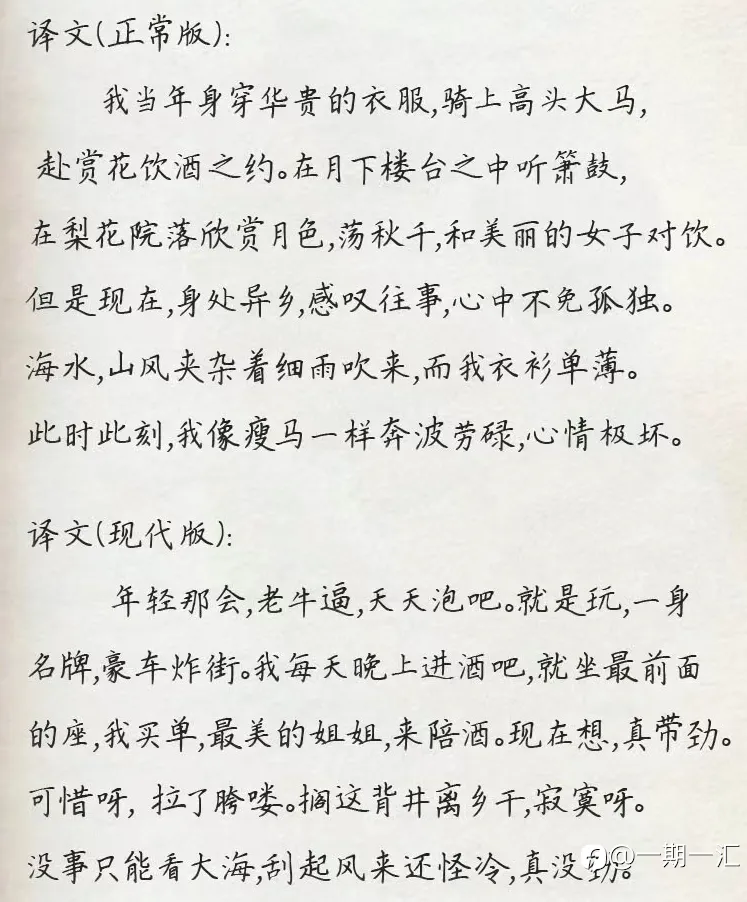 译文(正常版):
我当年身穿华贵的衣服,骑上高头大马,
赴赏花饮酒之约。在月下楼台之中听箫鼓,
在梨花院落欣赏月色,荡秋千,和美丽的女子对饮。
但是现在,身处异乡,感叹往事,心中不免孤独。
海水,山风夹杂着细雨吹来,而我衣衫单薄。
此时此刻,我像瘦马一样奔波劳碌,心情极坏。
译文(现代版):
年轻那会,老牛逼,天天泡吧。就是玩,一身
名牌,豪车炸街。我每天晚上进酒吧,就坐最前面
的座,我买单,最美的姐姐,来陪酒。现在想,真带劲。
可惜呀, 拉了胯喽。搁这背井离乡干,寂寞呀。
没事只能看大海,刮起风来还怪冷,真没劲。
@一期一汇